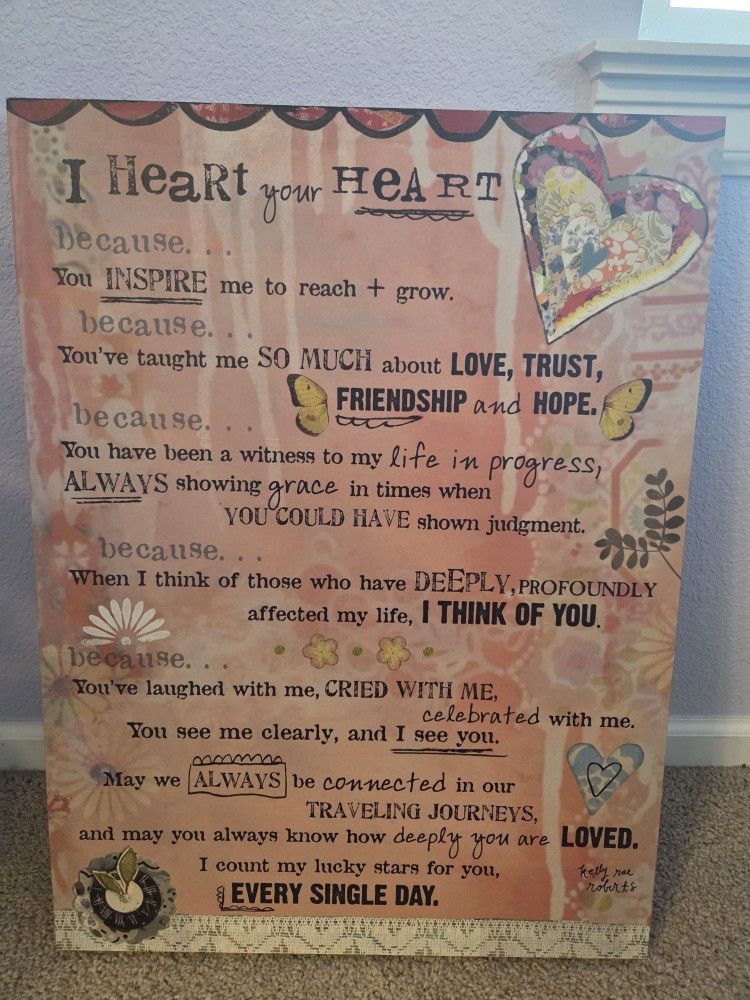 I HeaRt your HeART
because. . .
You INSPIRE me to reach + grow.
because. . .
You've taught me SO MUCH about LOVE, TRUST,
FRIENDSHIP and HOPE.
because. . .
You have been a witness to my life in progress,
ALWAYS showing grace in times when
YOU COULD HAVE shown judgment.
because. . .
When I think of those who have DEEPLY, PROFOUNDLY
affected my life, I THINK OF YOU.
because. . .
You've laughed with me, CRIED WITH ME,
celebrated with me.
You see me clearly, and I see you.
May we ALWAYS be connected in our
TRAVELING JOURNEYS,
and may you always know how deeply you are LOVED.
I count my lucky stars for you,
EVERY SINGLE DAY.
kelly rae
roberts